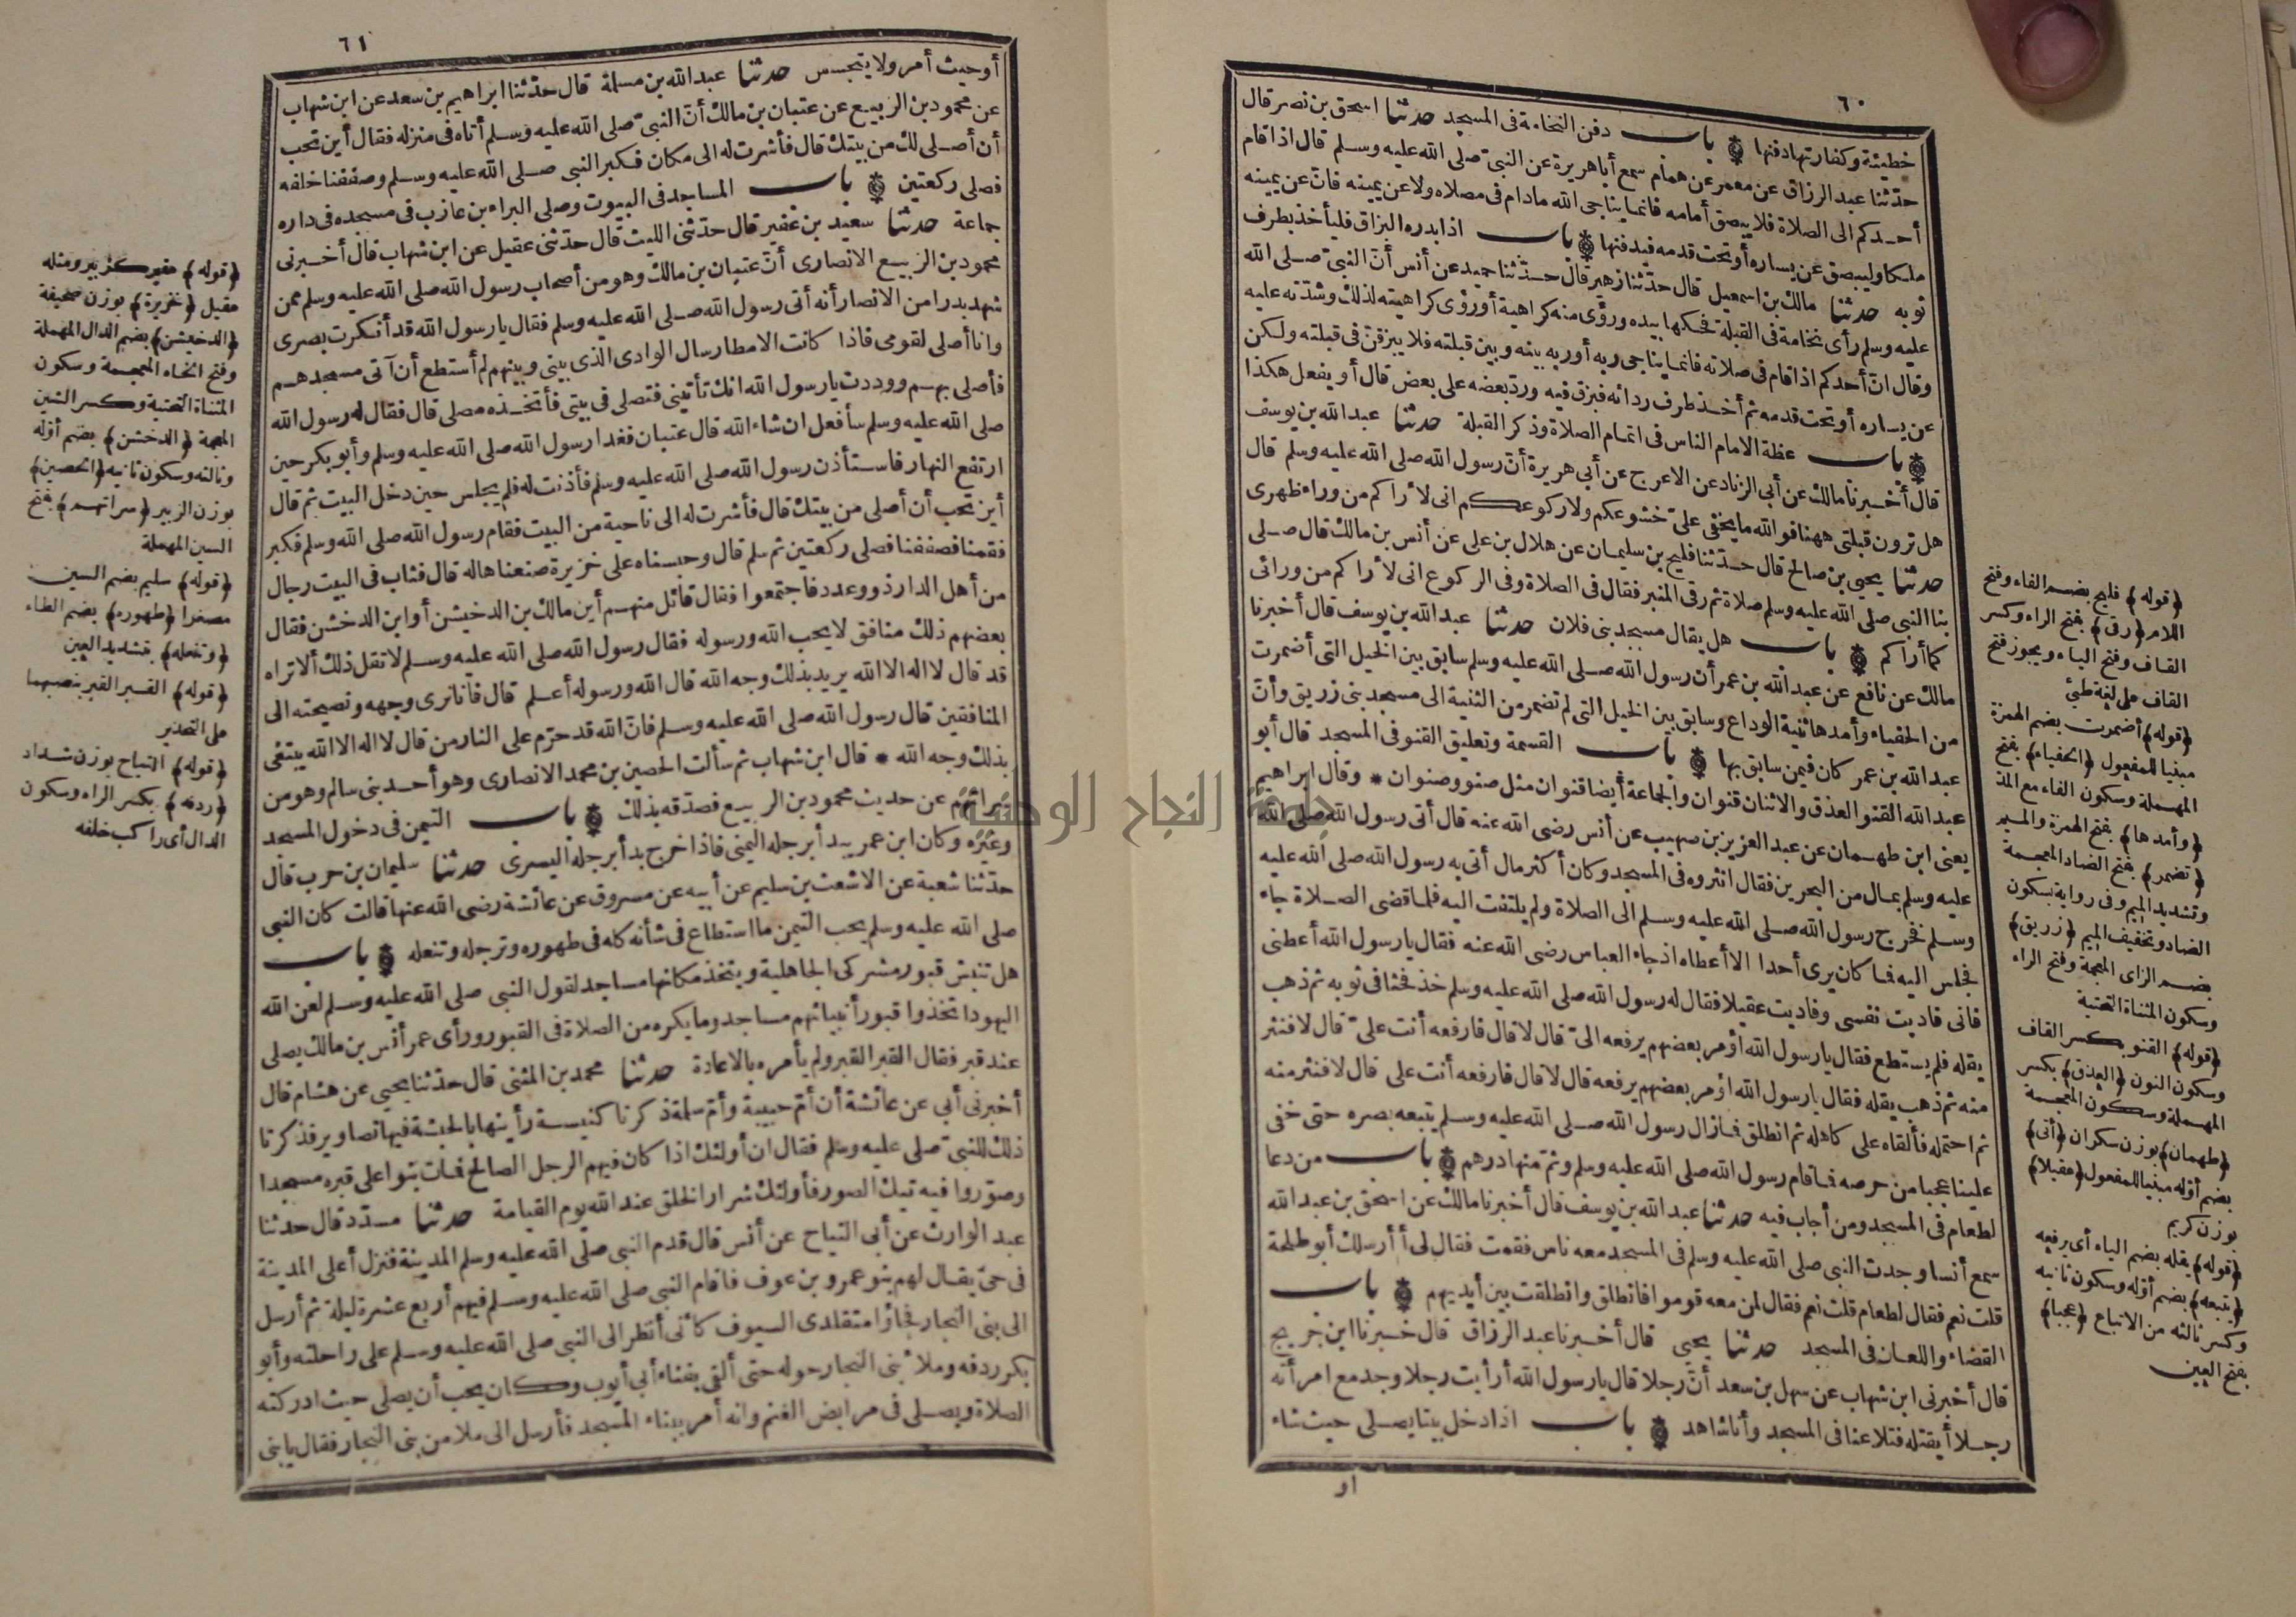 ٦٠
خطيئة وكفارتها دفنها باب دفن النخامة فى المسجد حدثنا اسحق بن نصر قال
حدّثنا عبد الرزاق عن معمر عن همام سمع أبا هريرة عن النبىّ صلى الله عليه وسلم قال اذا قام
أحدكم الى الصلاة فلا يبصق أمامه فانما يناجى الله مادام فى مصلاه ولا عن يمينه فانّ عن يمينه
ملكا وليبصق عن يساره أو تحت قدمه فيدفنها باب اذا بدره البزاق فليأخذ بطرف
ثوبه حدثنا مالك بن اسمعيل قال حدّثنا زهير قال حدّثنا حميد عن أنس أنّ النبىّ صلى الله
عليه وسلم رأى نخامة فى القبلة فحكها بيده ورؤى منه كراهية أو رؤى كراهيته لذلك وشدّته عليه
وقال انّ أحدكم اذا قام فى صلاته فانما يناجى ربه أو ربه بينه وبين قبلته فلا يبزقنّ فى قبلته ولكن
عن يساره أو تحت قدمه ثم أخذ طرف ردائه فبزق فيه وردّ بعضه على بعض قال أو يفعل هكذا
باب عظة الامام الناس فى اتمام الصلاة وذكر القبلة حدثنا عبد الله بن يوسف
قال أخبرنا مالك عن أبى الزناد عن الاعرج عن أبى هريرة أنّ رسول الله صلى الله عليه وسلم قال
هل ترون قبلتى ههنا فو الله ما يخفى علىّ خشوعكم ولا ركوعكم انى لأراكم من وراء ظهرى
حدثنا يحيى بن صالح قال حدّثنا فليح بن سليمان عن هلال بن على عن أنس بن مالك قال صلى
بنا النبى صلى الله عليه وسلم صلاة ثم رقى المنبر فقال فى الصلاة وفى الركوع انى لأراكم من ورائى
كما أراكم باب هل يقال مسجد بنى فلان حدثنا عبد الله بن يوسف قال أخبرنا
مالك عن نافع عن عبد الله بن عمر أن رسول الله صلى الله عليه وسلم سابق بين الخيل التى أضمرت
من الحفياء وأمدها ثنية الوداع وسابق بين الخيل التى لم تضمر من الثنية الى مسجد بنى زريق وأنّ
عبد الله بن عمر كان فيمن سابق بها باب القسمة وتعليق القنو فى المسجد قال أبو
عبد الله القنو العذق والاثنان قنوان والجماعة أيضا قنوان مثل صنو وصنوان * وقال ابراهيم
يعنى ابن طهمان عن عبد العزيز بن صهيب عن أنس رضى الله عنه قال أتى رسول الله صلى الله
عليه وسلم بمال من البحرين فقال انثروه فى المسجد وكان أكثر مال أتى به رسول الله صلى الله عليه
وسلم فخرج رسول الله صلى الله عليه وسلم الى الصلاة ولم يلتفت اليه فلما قضى الصلاة جاء
فجلس اليه فما كان يرى أحدا الا أعطاه اذ جاء العباس رضى الله عنه فقال يا رسول الله أعطنى
فانى فاديت نفسى وفاديت عقيلا فقال له رسول الله صلى الله عليه وسلم خذ فحثا فى ثوبه ثم ذهب
يقله فلم يستطع فقال يا رسول الله اؤمر بعضهم يرفعه الىّ قال لا قال فارفعه أنت علىّ قال لا فنثر
منه ثم ذهب يقله فقال يا رسول الله اؤمر بعضهم يرفعه قال لا قال فارفعه أنت على قال لا فنثر منه
ثم احتمله فألقاه على كاهله ثم انطلق فمازال رسول الله صلى الله عليه وسلم يتبعه بصره حتى خفى
علينا عجبا من حرصه فما قام رسول الله صلى الله عليه وسلم وثمّ منها درهم باب من دعا
لطعام فى المسجد ومن أجاب فيه حدثنا عبد الله بن يوسف قال أخبرنا مالك عن اسحق بن عبد الله
سمع أنسا وجدت النبى صلى الله عليه وسلم فى المسجد معه ناس فقمت فقال لى أأرسلك أبو طلحة
قلت نعم فقال لطعام قلت نعم فقال لمن معه قوموا فانطلق وانطلقت بين أيديهم باب
القضاء واللعان فى المسجد حدثنا يحيى قال أخبرنا عبد الرزاق قال خبرنا ابن جريج
قال أخبرنى ابن شهاب عن سهل بن سعد أنّ رجلا قال يا رسول الله أرأيت رجلا وجد مع امرأته
رجلا أيقتله فتلاعنا فى المسجد وأنا شاهد باب اذا دخل بيتا يصلى حيث شاء
أو
(قوله) فليح بضم الفاء وفتح
اللام (رقى) بفتح الراء وكسر
القاف وفتح الياء ويجوز فتح
القاف على لغة طيئ
(قوله) أضمرت بضم الهمزة
مبنيا للمفعول (الحفياء) بفتح
المهملة وسكون الفاء مع المدّ
(وأمدها) بفتح الهمزة والميم
(تضمر) بفتح الضاد المعجمة
وتشديد الميم وفى رواية بسكون
الضاد وتخفيف الميم (زريق)
بضم الزاى المعجمة وفتح الراء
وسكون المثناة التحتية
(قوله) القنو بكسر القاف
وسكون النون (العذق) بكسر
المهملة وسكون المعجمة
(طهمان) بوزن سكران (أتى)
بضم أوّله مبنيا للمفعول (عقيلا)
بوزن كريم
(قوله) يقله بضم الياء أى يرفعه
(يتبعه) بضم أوّله وسكون ثانيه
وكسر ثالثه من الاتباع (عجبا)
بفتح العين
٦١
أو حيث أمر ولا يتجسس حدثنا عبد الله بن مسلمة قال حدّثنا ابراهيم بن سعد عن ابن شهاب
عن محمود بن الربيع عن عتبان بن مالك أنّ النبىّ صلى الله عليه وسلم أتاه فى منزله فقال أين تحب
أن أصلى لك من بيتك قال فأشرت له الى مكان فكبر النبى صلى الله عليه وسلم وصففنا خلفه
فصلى ركعتين باب المساجد فى البيوت وصلى البراء بن عازب فى مسجده فى داره
جماعة حدثنا سعيد بن عفير قال حدّثنى الليث قال حدّثنى عقيل عن ابن شهاب قال أخبرنى
محمود بن الربيع الانصارى أنّ عتبان بن مالك وهو من أصحاب رسول الله صلى الله عليه وسلم ممن
شهد بدرا من الانصار أنه أتى رسول الله صلى الله عليه وسلم فقال يا رسول الله قد أنكرت بصرى
وانا أصلى لقومى فاذا كانت الامطار سال الوادى الذى بينى وبينهم لم أستطع أن آتى مسجدهم
فأصلى بهم ووددت يا رسول الله انك تأتينى فتصلى فى بيتى فأتخذه مصلى قال فقال له رسول الله
صلى الله عليه وسلم سأفعل ان شاء الله قال عتبان فغدا رسول الله صلى الله عليه وسلم وأبو بكر حين
ارتفع النهار فاستأذن رسول الله صلى الله عليه وسلم فأذنت له فلم يجلس حين دخل البيت ثم قال
أين تحب أن أصلى من بيتك قال فأشرت له الى ناحية من البيت فقام رسول الله صلى الله عليه وسلم فكبر
فقمنا فصففنا فصلى ركعتين ثم سلم قال وحبسناه على خزيرة صنعناها له قال فثاب فى البيت رجال
من أهل الدار ذوو عدد فاجتمعوا فقال قائل منهم أين مالك بن الدخيشن أو ابن الدخشن فقال
بعضهم ذلك منافق لا يحب الله ورسوله فقال رسول الله صلى الله عليه وسلم لا تقل ذلك ألا تراه
قد قال لا اله الا الله يريد بذلك وجه الله قال الله ورسوله أعلم قال فانا نرى وجهه ونصيحته الى
المنافقين قال رسول الله صلى الله عليه وسلم فانّ الله قد حرّم على النار من قال لا اله الا الله يبتغى
بذلك وجه الله * قال ابن شهاب ثم سألت الحصين بن محمد الانصارى وهو أحد بنى سالم وهو من
سراتهم عن حديث محمود بن الربيع فصدّقه بذلك باب التيمن فى دخول المسجد
وغيره وكان ابن عمر يبدأ برجله اليمنى فاذا خرج بدأ برجله اليسرى حدثنا سليمان بن حرب قال
حدّثنا شعبة عن الاشعث بن سليم عن أبيه عن مسروق عن عائشة رضى الله عنها قالت كان النبى
صلى الله عليه وسلم يحب التيمن ما استطاع فى شأنه كله فى طهوره وترجله وتنعله باب
هل تنبش قبور مشركى الجاهلية ويتخذ مكانها مساجد لقول النبى صلى الله عليه وسلم لعن الله
اليهود اتخذوا قبور أنبيائهم مساجد وما يكره من الصلاة فى القبور ورأى عمر أنس بن مالك يصلى
عند قبر فقال القبر القبر ولم يأمره بالاعادة حدثنا محمد بن المثنى قال حدّثنا يحيى عن هشام قال
أخبرنى أبى عن عائشة أن أمّ حبيبة وأمّ سلمة ذكرتا كنيسة رأينها بالحبشة فيها تصاوير فذكرتا
ذلك للنبىّ صلى عليه وسلم فقال ان أولئك اذا كان فيهم الرجل الصالح فمات بنوا على قبره مسجدا
وصوّروا فيه تيك الصور فأولئك شرار الخلق عند الله يوم القيامة حدثنا مسدّد قال حدثنا
عبد الوارث عن أبى التياح عن أنس قال قدم النبى صلى الله عليه وسلم المدينة فنزل أعلى المدينة
فى حىّ يقال لهم بنو عمرو بن عوف فاقام النبى صلى الله عليه وسلم فيهم أربع عشرة ليلة ثم أرسل
الى بنى النجار فجاؤا متقلدى السيوف كأنى أنظر الى النبى صلى الله عليه وسلم على راحلته وأبو
بكر ردفه وملأ بنى النجار حوله حتى ألقى بفناء أبى أيوب وكان يحب أن يصلى حيث ادركته
الصلاة ويصلى فى مرابض الغنم وانه أمر ببناء المسجد فأرسل الى ملا من بنى النجار فقال يا بنى
(قوله) عفير كزبير ومثله
عقيل (خزيرة) بوزن صحيفة
(الدخيشن) بضم الدال المهملة
وفتح الخاء المعجمة وسكون
المثناة التحتية وكسر الشين
المعجمة (الدخشن) بضم أوّله
وثالثه وسكون ثانيه (الحصين)
بوزن الزبير (سراتهم) بفتح
السين المهملة
(قوله) سليم بضم السين
مصغرا (طهوره) بضم الطاء
(وتنعله) بتشديد العين
(قوله) القبر القبر بنصبهما
على التحذير
(قوله) التياح بوزن شداد
(ردفه) بكسر الراء وسكون
الدال أى راكب خلفه
جامعة النجاح الوطنية